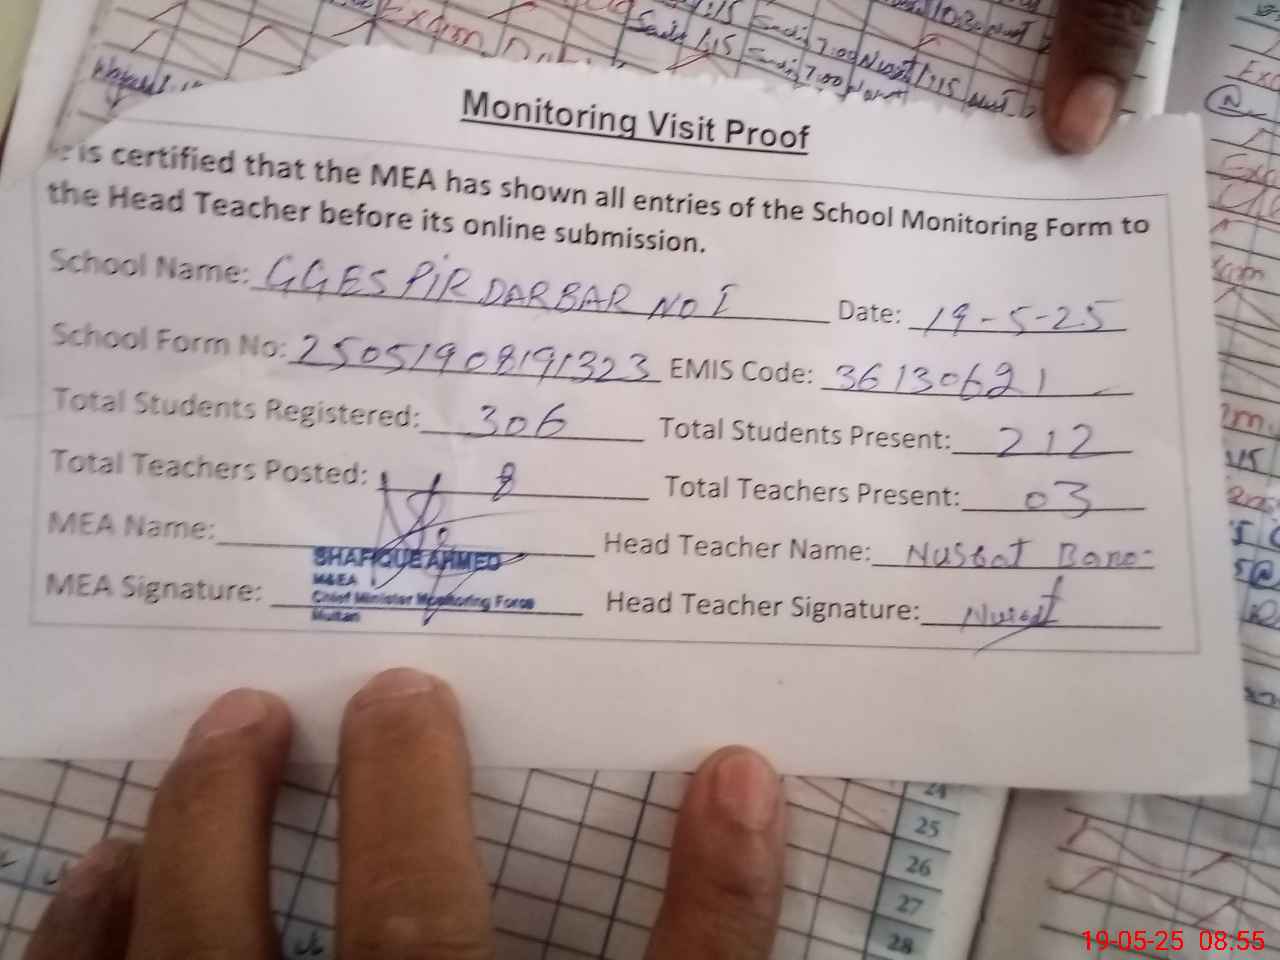 Exam
Monitoring Visit Proof
is certified that the MEA has shown all entries of the School Monitoring Form to
the Head Teacher before its online submission.
School Name: GGES PIR DARBAR NO I Date: 19-5-25
School Form No: 25051908191323 EMIS Code: 36130621
Total Students Registered: 306 Total Students Present: 212
Total Teachers Posted: 8 Total Teachers Present: 03
MEA Name: Head Teacher Name: Nusrat Bano
SHAFIQUE AHMED
M&EA
Chief Minister Monitoring Force
Multan
MEA Signature: Head Teacher Signature: Nusrat
24
25
26
27
28
19-05-25 08:55